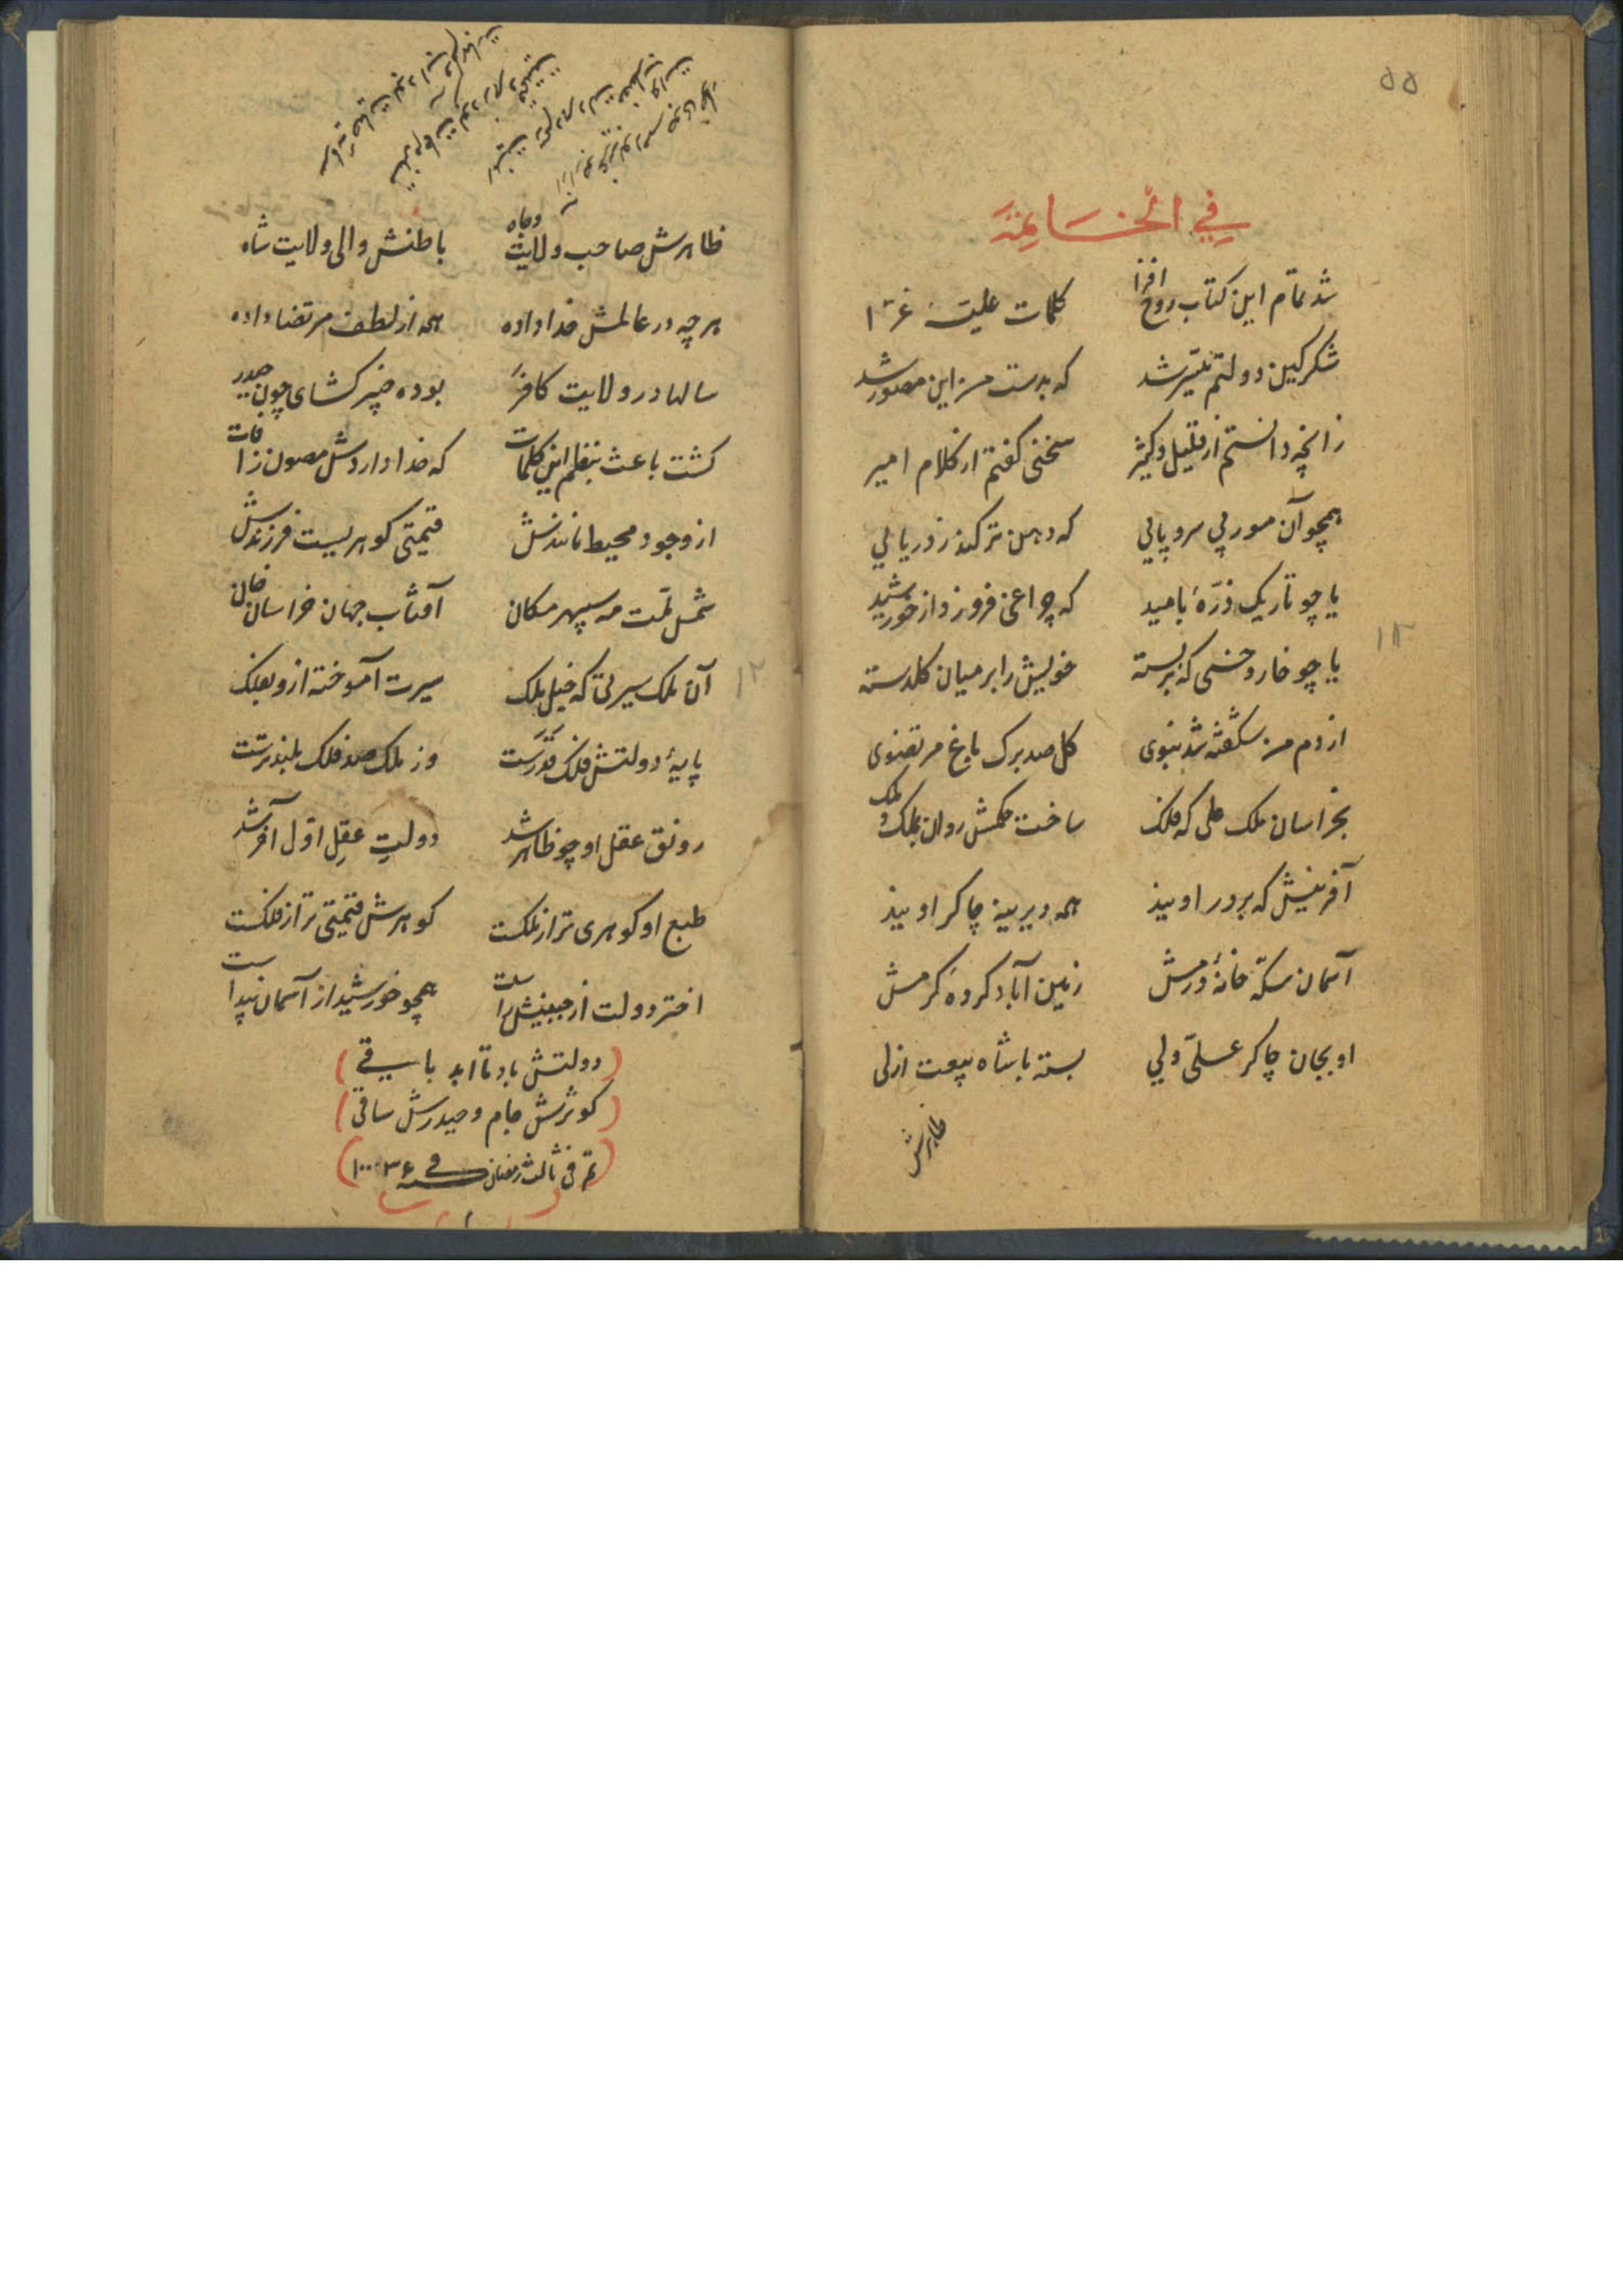 ۵۵
في الخاتمة
شد تمام این کتاب روح افزا کلمات علیّهٔ غرّا
شکر کین دولتم میّسر شد که بدست من این مصور شد
زانچه دانستم از قلیل و کثیر سخنی کفتم از کلام امیر
همچو آن مور بی سر و پایی که دهن تر کند ز دریایی
یا چو تاریک ذرّهٔ بامید که چراغی فروزد از خورشید
یا چو خار و خسی که بر بسته خویش را بر میان کلدسته
از دم من شکفته شد بنوی کل صد برک باغ مرتضوی
بخراسان ملک علی که فلک ساخت حکمش روان بملک و ملک
آفرینش که بر در اویند همه دیرینه چاکر اویند
آسمان سکّه خانهٔ درمش زمین آباد کردهٔ کرمش
او بجان چاکر علیّ ولي بسته با شاه بیعت ازلی
ظاهرش
ظاهرش صاحب ولایت و جاه باطنش والی ولایت شاه
هر چه در عالمش خدا داده همه از لطف مرتضا داده
سالها در ولایت کافر بوده خیبر کشای چون حیدر
کشت باعث بنظم این کلمات که خدا داردش مصون ز افات
از وجود محیط مانندش قیمتی کوهریست فرزندش
شمس ملّت مه سپهر مکان آفتاب جهان خراسان خان
آن ملک سیرتی که خیل ملک سیرت آموخته ازو بفلک
پایهٔ دولتش فلک قدرست وز ملک صد فلک بلندترست
رونق عقل او چو ظاهر شد دولتِ عقلِ اوّل آخر شد
طبع او کوهری تر از ملکست کوهرش قیمتی تر از فلکست
اختر دولت از جبینش راست همچو خورشید از آسمان پیداست
(دولتش باد تا ابد باقي)
(کوثرش جام و حیدرش ساقی)
(تم فی ثالث رمضان سنه ۱۰۰۳۶)